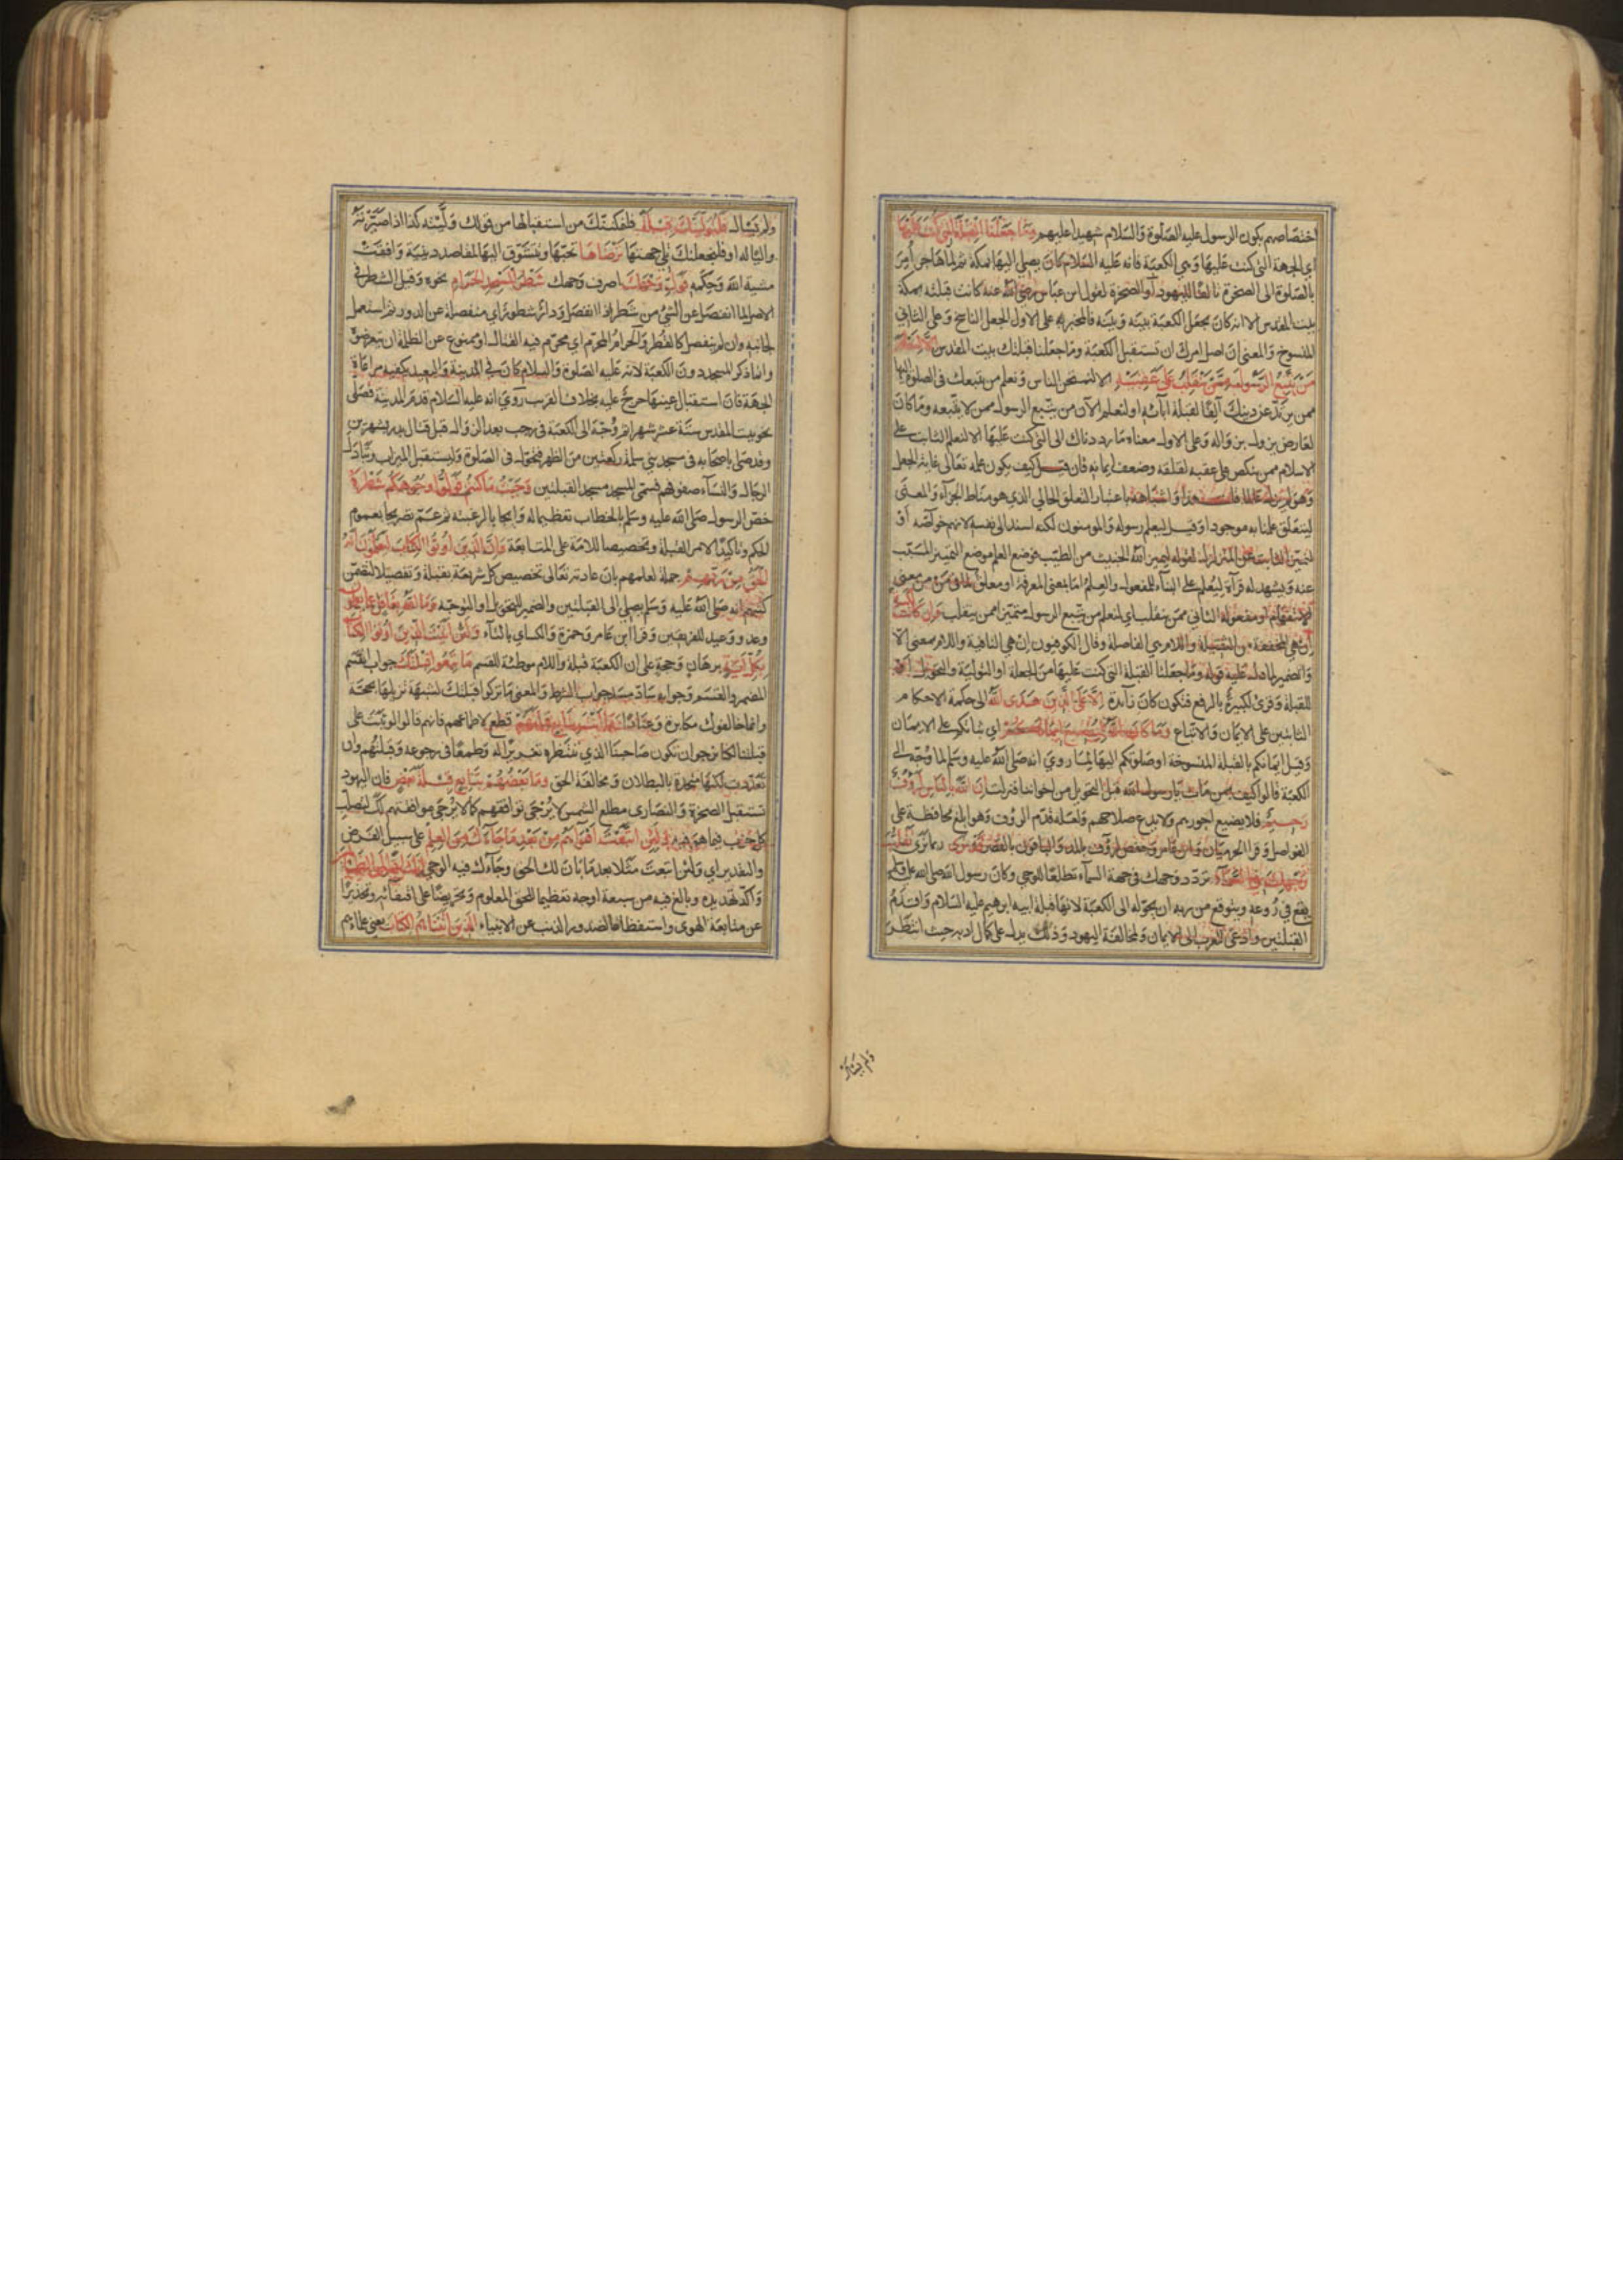 اختصاصهم بكون الرسول عليه الصلوة والسلام شهيدا عليهم وما جعلنا القبلة التي كنت عليها
اي الجهة التي كنت عليها وهي الكعبة فانه عليه السلام كان يصلي اليها بمكة ثم لما هاجر امر
بالصلوة الى الصخرة تالفا لليهود او الصخرة لقول ابن عباس رضي الله عنه كانت قبلته بمكة
بيت المقدس الا انه كان يجعل الكعبة بينه وبينه فالمخبر به على الاول الجعل الناسخ وعلى الثاني
المنسوخ والمعنى ان اصل امرك ان تستقبل الكعبة وما جعلنا قبلتك بيت المقدس الا لنعلم
من يتبع الرسول ممن ينقلب على عقبيه الا لنمتحن الناس ونعلم من يتبعك في الصلوة اليها
ممن يرتد عن دينك آلفا لقبلة ابائه او لنعلم الآن من يتبع الرسول ممن لا يتبعه وما كان
لعارض يزول بزواله وعلى الاول معناه ما رددناك الى التي كنت عليها الا لنعلم الثابت على
الاسلام ممن ينكص على عقبيه لقلقه وضعف ايمانه فان قيل كيف يكون علمه تعالى غاية الجعل
وهو لم يزل عالما قلت هذا واشباهه باعتبار التعلق الحالي الذي هو مناط الجزآء والمعنى
ليتعلق علمنا به موجودا وقيل ليعلم رسوله والمومنون لكنه اسند الى نفسه لانهم خواصه او
لتميز الثابت عن المتزلزل لقوله ليميز الله الخبيث من الطيب فوضع العلم موضع التمييز المسبب
عنه ويشهد له قرآة ليعلم على البناء للمفعول والعلم اما بمعنى المعرفة او معلق لما في من من معنى
الاستفهام او مفعوله الثاني ممن ينقلب اي لنعلم من يتبع الرسول متميزا ممن ينقلب وان كانت لكبيرة
ان هي المخففة من الثقيلة واللام هي الفاصلة وقال الكوفيون ان هي النافية واللام بمعنى الا
والضمير لما دل عليه قوله وما جعلنا القبلة التي كنت عليها من الجعلة او التولية والتحويلة او
للقبلة وقرئ لكبيرة بالرفع فتكون كان زآئدة الا على الذين هدى الله الى حكمة الاحكام
الثابتين على الايمان والاتباع وما كان الله ليضيع ايمانكم اي ثباتكم على الايمان
وقيل ايمانكم بالقبلة المنسوخة او صلوتكم اليها لما روي انه صلى الله عليه وسلم لما وجه الى
الكعبة قالوا كيف بمن مات يا رسول الله قبل التحويل من اخواننا فنزلت ان الله بالناس لرؤف
رحيم فلا يضيع اجورهم ولا يدع صلاحهم ولعله قدم الرؤف وهو ابلغ محافظة على
الفواصل وقرا الحرميان وابن عامر وحفص لرؤف بالمد والباقون بالقصر قد نرى ربما نرى تقلب
وجهك في السماء تردد وجهك في جهة السمآء تطلعا للوحي وكان رسول الله صلى الله عليه وسلم
يقع في روعه ويتوقع من ربه ان يحوله الى الكعبة لانها قبلة ابيه ابرهيم عليه السلام واقدم
القبلتين وادعى للعرب الى الايمان ولمخالفة اليهود وذلك يدل على كمال ادبه حيث انتظر
ولم يسال
ولم يسال فلنولينك قبلة فلنمكننك من استقبالها من قولك وليته كذا اذا صيرته
واليا له او فلنجعلنك تلي جهتها ترضاها تحبها وتتشوق اليها لمقاصد دينية وافقت
مشية الله وحكمه فول وجهك اصرف وجهك شطر المسجد الحرام نحوه وقيل الشطر في
الاصل لما انفصل عن الشيء من شطر اذا انفصل ودار شطور اي منفصلة عن الدور ثم استعمل
لجانبه وان لم ينفصل كالقطر والحرام المحرم اي محرم فيه القتال او ممنوع عن الظلمة ان يتعرضوه
وانما ذكر المسجد دون الكعبة لانه عليه الصلوة والسلام كان في المدينة والبعيد يكفيه مراعاة
الجهة فان استقبال عينها حرج عليه بخلاف القرب روي انه عليه السلام قدم المدينة فصلى
نحو بيت المقدس ستة عشر شهرا ثم وجه الى الكعبة في رجب بعد الزوال قبل قتال بدر بشهرين
وقد صلى باصحابه في مسجد بني سلمة ركعتين من الظهر فتحول في الصلوة واستقبل الميزاب وتبادل
الرجال والنسآء صفوفهم فسمي المسجد مسجد القبلتين وحيث ما كنتم فولوا وجوهكم شطره
خص الرسول صلى الله عليه وسلم بالخطاب تعظيما له وايجابا لرغبته ثم عمم تصريحا بعموم
الحكم وتاكيدا لامر القبلة وتحضيضا للامة على المتابعة وان الذين اوتوا الكتاب ليعلمون انه
الحق من ربهم جملة لعلمهم بان عادته تعالى تخصيص كل شريعة بقبلة وتفصيلا لتضمن
كتبهم انه صلى الله عليه وسلم يصلي الى القبلتين والضمير للتحويل او التوجه وما الله بغافل عما يعملون
وعد ووعيد للفريقين وقرا ابن عامر وحمزة والكساي بالتآء ولئن اتيت الذين اوتوا الكتاب
بكل آية برهان وحجة على ان الكعبة قبلة واللام موطئة للقسم ما تبعوا قبلتك جواب القسم
المضمر والقسم وجوابه ساد مسد جواب الشرط والمعنى ما تركوا قبلتك لشبهة تزيلها بحجة
وانما خالفوك مكابرة وعنادا وما انت بتابع قبلتهم قطع لاطماعهم فانهم قالوا لو ثبت على
قبلتنا لكنا نرجو ان تكون صاحبنا الذي ننتظره تغريرا له وطمعا في رجوعه وقبلتهم وان
تعددت لكنها متحدة بالبطلان ومخالفة الحق وما بعضهم بتابع قبلة بعض فان اليهود
تستقبل الصخرة والنصارى مطلع الشمس لا يرجى توافقهم كما لا يرجى موافقتهم لك لتصلب
كل حزب فيما هو فيه ولئن اتبعت اهوآءهم من بعد ما جآءك من العلم على سبيل الفرض
والتقدير اي ولئن اتبعت مثلا بعد ما بان لك الحق وجآءك فيه الوحي انك اذا لمن الظالمين
واكد تهديده وبالغ فيه من سبعة اوجه تعظيما للحق المعلوم وتحريضا على اقتفائه وتحذيرا
عن متابعة الهوى واستفظاعا لصدور الذنب عن الانبياء الذين آتيناهم الكتاب يعني علماءهم